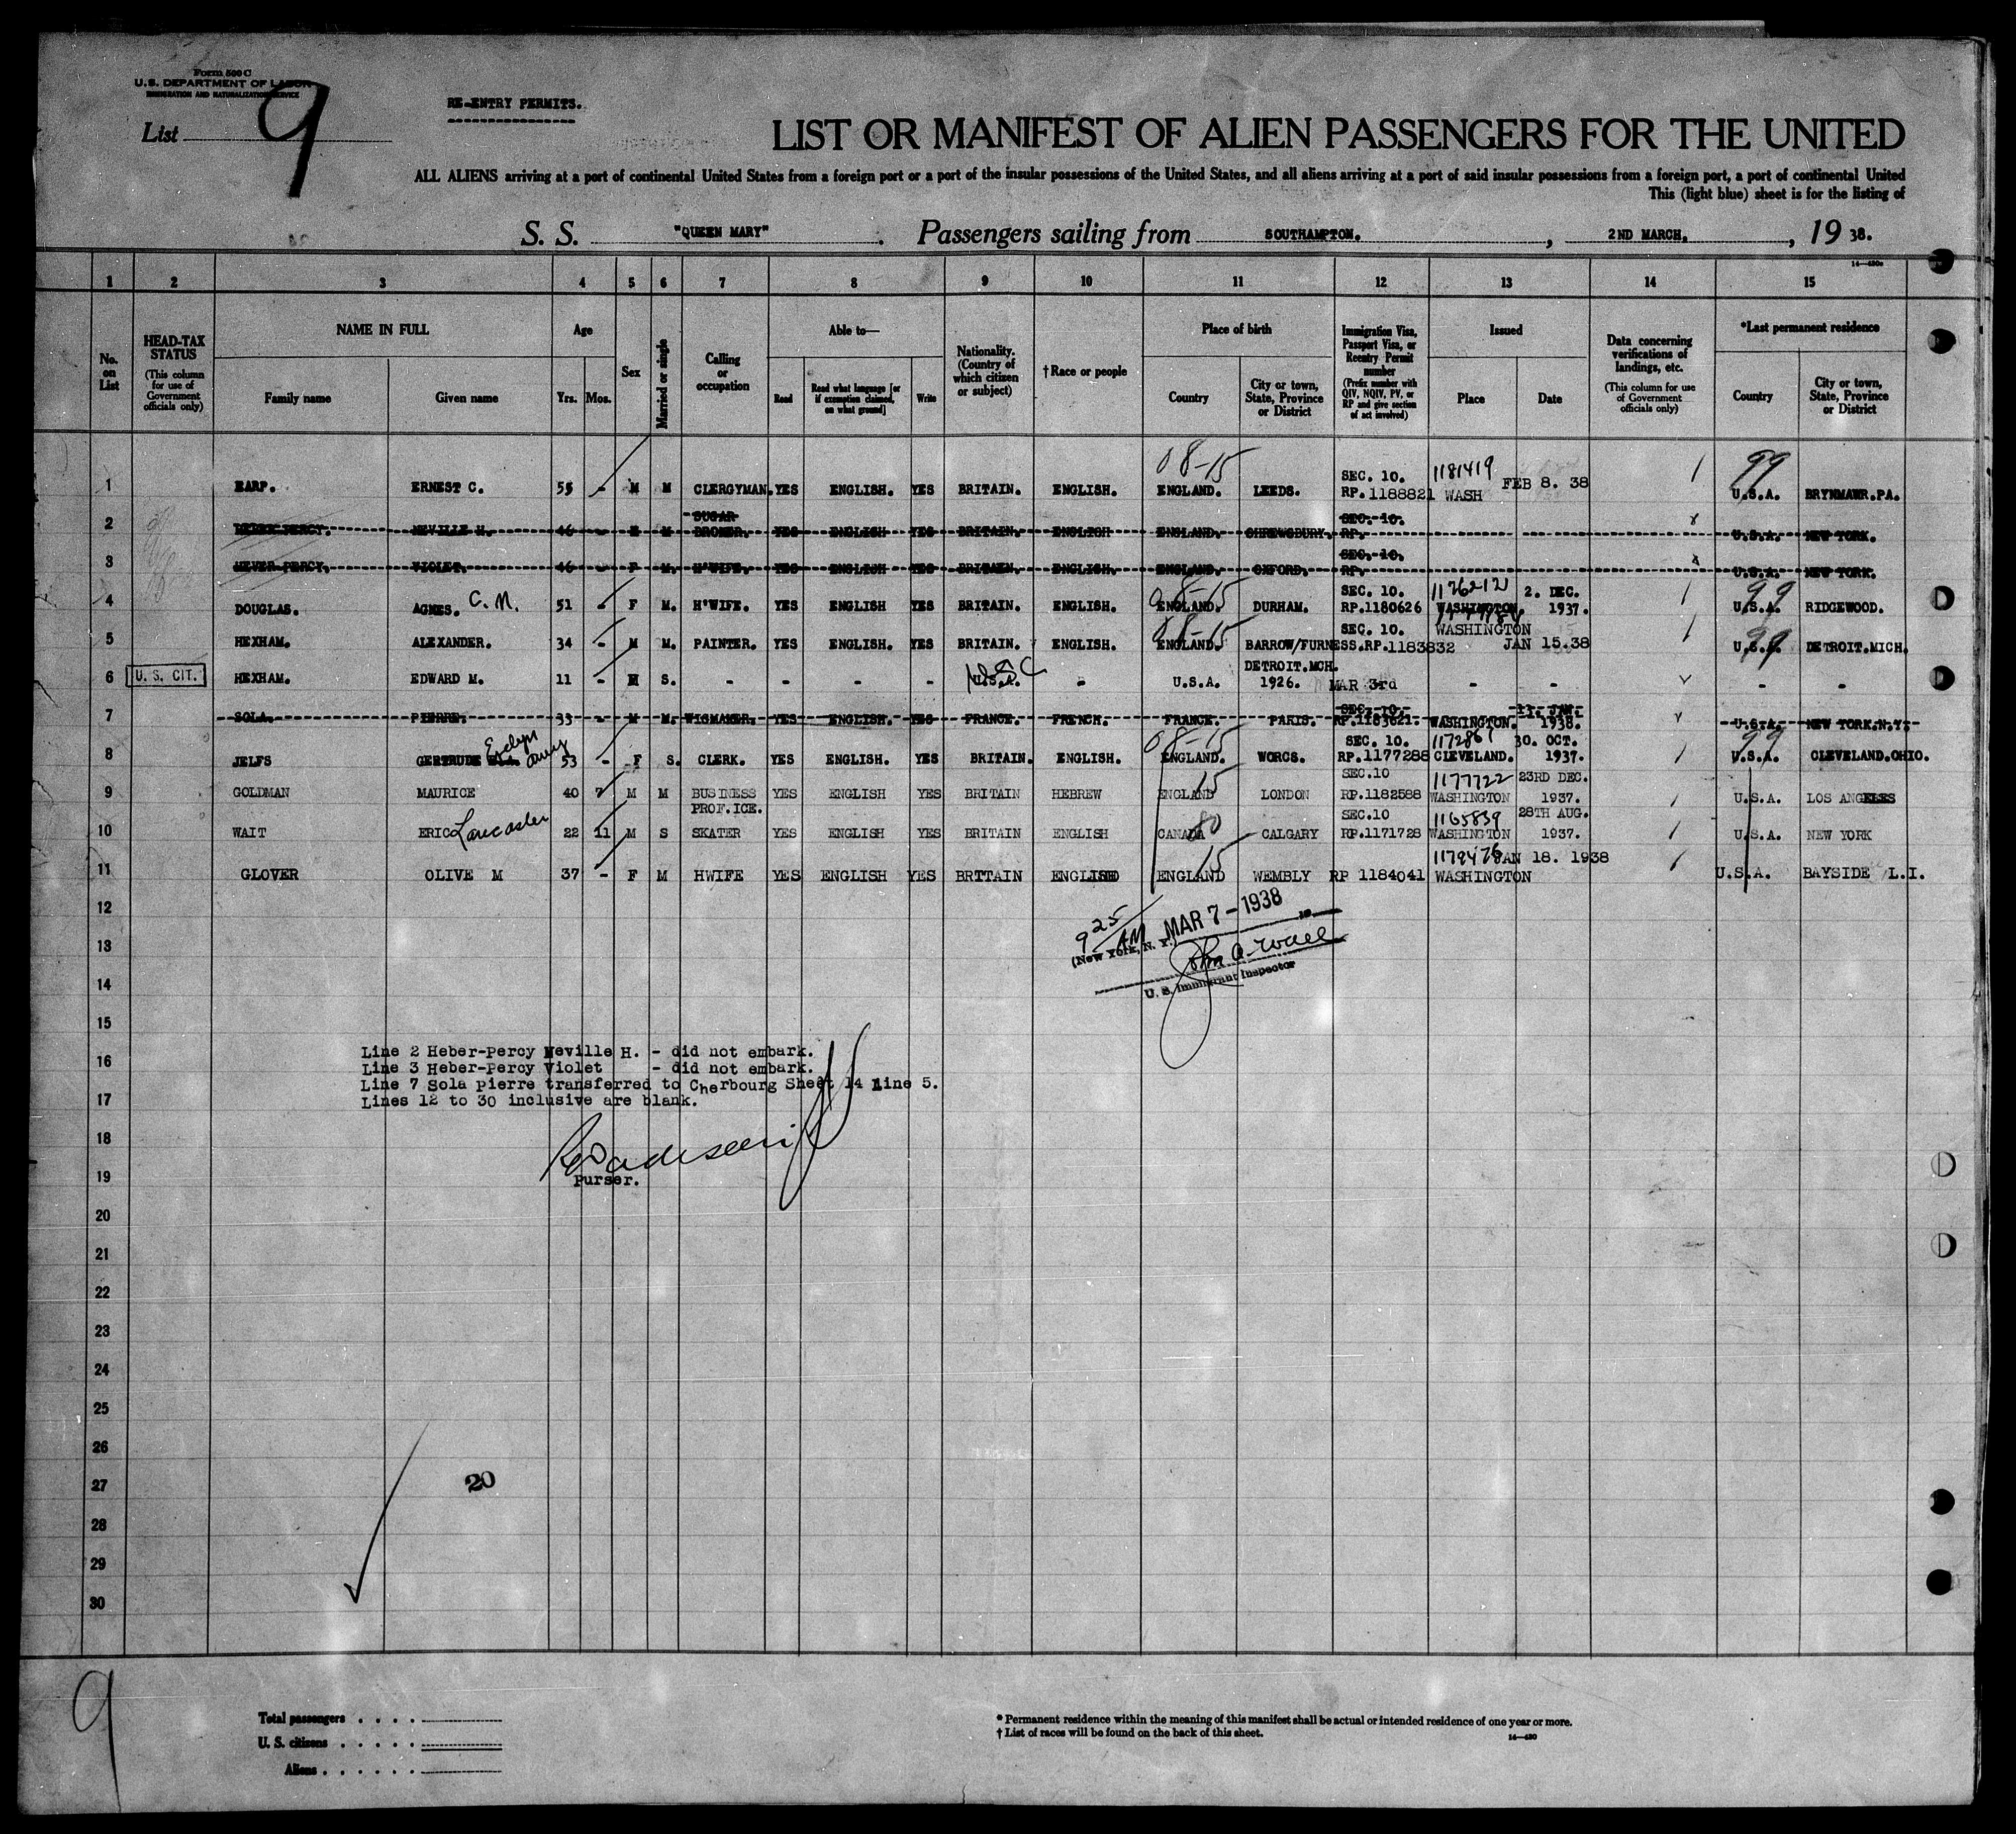 Form 500 C
U.S. DEPARTMENT OF LABOR
IMMIGRATION AND NATURALIZATION SERVICE
List 9
RE-ENTRY PERMITS.
LIST OR MANIFEST OF ALIEN PASSENGERS FOR THE UNITED
ALL ALIENS arriving at a port of continental United States from a foreign port or a port of the insular possessions of the United States, and all aliens arriving at a port of said insular possessions from a foreign port, a port of continental United
This (light blue) sheet is for the listing of
S. S. "QUEEN MARY". Passengers sailing from SOUTHAMPTON. , 2ND MARCH. , 19 38.
1 2 3 4 5 6 7 8 9 10 11 12 13 14 15
No. on List
HEAD-TAX STATUS
(This column for use of Government officials only)
NAME IN FULL
Family name Given name
Age
Yrs. Mos.
Sex
Married or single
Calling or occupation
Able to—
Read Read what language [or if exemption claimed, on what ground] Write
Nationality. (Country of which citizen or subject)
†Race or people
Place of birth
Country City or town, State, Province or District
Immigration Visa, Passport Visa, or Reentry Permit number
(Prefix number with QIV, NQIV, PV, or RP and give section of act involved)
Issued
Place Date
Data concerning verifications of landings, etc.
(This column for use of Government officials only)
*Last permanent residence
Country City or town, State, Province or District
08-15 SEC. 10. 1181419 99
1 EARP. ERNEST C. 55 - M M CLERGYMAN. YES ENGLISH. YES BRITAIN. ENGLISH. ENGLAND. LEEDS. RP. 1188821 WASH FEB 8. 38 U.S.A. BRYNMAWR.PA.
SUGAR SEC. 10.
2 HEBER-PERCY. NEVILLE H. 46 - M M. BROKER. YES ENGLISH YES BRITAIN. ENGLISH ENGLAND. SHREWSBURY. RP. U.S.A. NEW YORK.
SEC. 10.
3 HEBER PERCY. VIOLET. 46 - F M. H'WIFE. YES ENGLISH YES BRITAIN. ENGLISH. ENGLAND. OXFORD. RP. U.S.A. NEW YORK.
08-15 SEC. 10. 1176212 2. DEC. 99
4 DOUGLAS. AGNES. C. M. 51 - F M. H'WIFE. YES ENGLISH YES BRITAIN. ENGLISH. ENGLAND. DURHAM. RP.1180626 WASHINGTON. 1937. U.S.A. RIDGEWOOD.
08-15 SEC. 10. WASHINGTON 99
5 HEXHAM. ALEXANDER. 34 - M M. PAINTER. YES ENGLISH. YES BRITAIN. ENGLISH. ENGLAND. BARROW/FURNESS. RP.1183832 JAN 15.38 U.S.A. DETROIT.MICH.
U. S. CIT. USC DETROIT.MCH.
6 HEXHAM. EDWARD M. 11 - M S. - - - U.S.A. - U.S.A. 1926. MAR 3rd - - - -
SEC. 10. 11. JAN.
7 SOLA. PIERRE. 33 - M M. WIGMAKER. YES ENGLISH. YES FRANCE. FRENCH. FRANCE. PARIS. RP.1183621. WASHINGTON. 1938. U.S.A. NEW YORK.N.Y.
08-15 SEC. 10. 1172861 30. OCT. 99
8 JELFS GERTRUDE Evelyn Amy 53 - F S. CLERK. YES ENGLISH. YES BRITAIN. ENGLISH. ENGLAND. WORCS. RP.1177288 CLEVELAND. 1937. U.S.A. CLEVELAND.OHIO.
15 SEC.10 1177722 23RD DEC.
9 GOLDMAN MAURICE 40 7 M M BUSINESS YES ENGLISH YES BRITAIN HEBREW ENGLAND LONDON RP.1182588 WASHINGTON 1937. U.S.A. LOS ANGELES
PROF.ICE. 80 SEC.10 1165839 28TH AUG.
10 WAIT ERIC Lancaster 22 11 M S SKATER YES ENGLISH YES BRITAIN ENGLISH CANADA CALGARY RP.1171728 WASHINGTON 1937. U.S.A. NEW YORK
15 1179476 JAN 18. 1938
11 GLOVER OLIVE M 37 - F M HWIFE YES ENGLISH YES BRTTAIN ENGLISH ENGLAND WEMBLY RP 1184041 WASHINGTON U.S.A. BAYSIDE L.I.
12
9 25 AM MAR 7 - 1938
13
(New York, N. Y.)
14
U. S. Immigrant Inspector
15
Line 2 Heber-Percy Neville H. - did not embark.
16
Line 3 Heber-Percy Violet - did not embark.
Line 7 Sola pierre transferred to Cherbourg Sheet 14 line 5.
17
Lines 12 to 30 inclusive are blank.
18
19
Purser.
20
21
22
23
24
25
26
27
20
28
29
30
9
Total passengers . . . .
U. S. citizens . . . . .
Aliens . . . . . .
* Permanent residence within the meaning of this manifest shall be actual or intended residence of one year or more.
† List of races will be found on the back of this sheet.
14—430